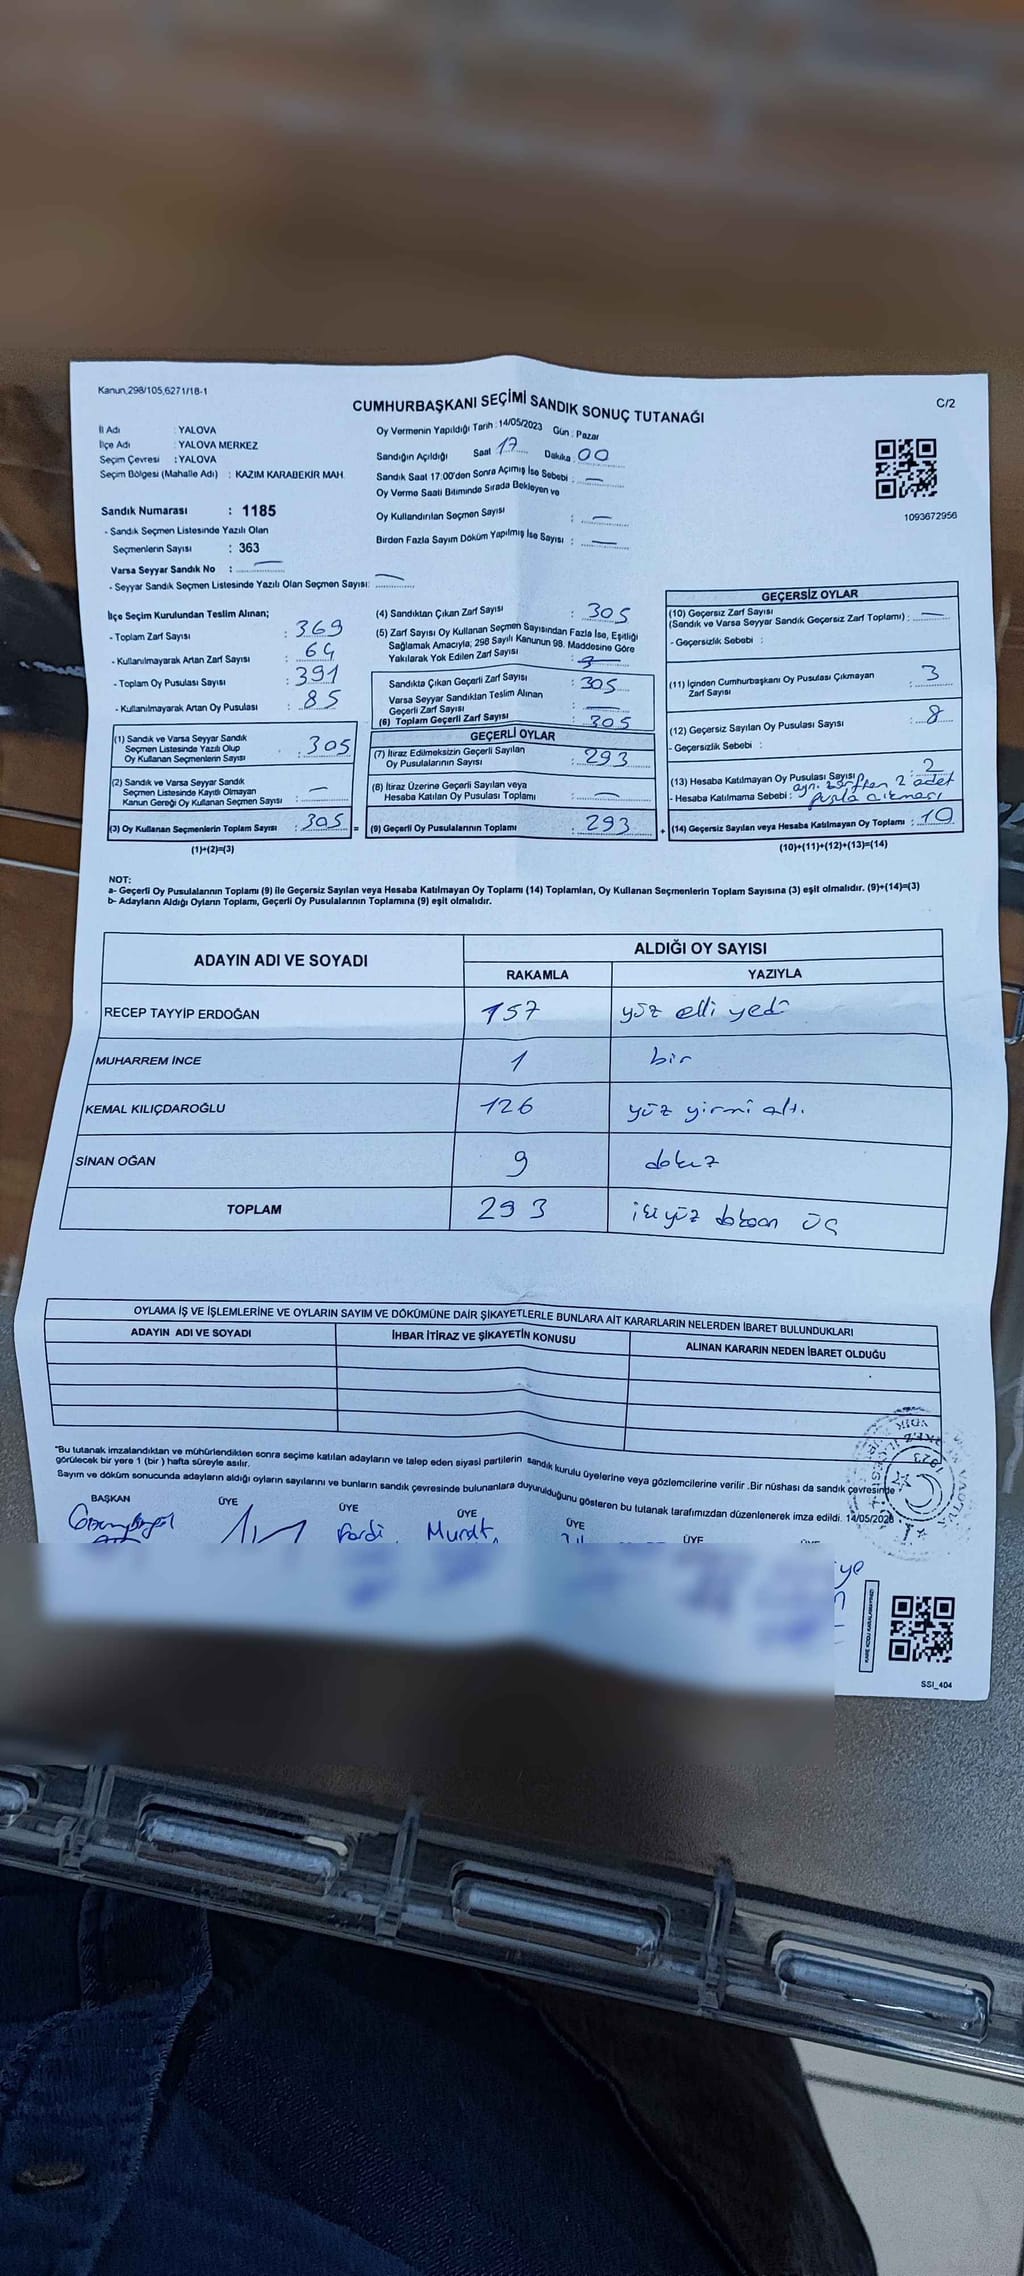 Kanun,298/105,6271/18-1
CUMHURBAŞKANI SEÇİMİ SANDIK SONUÇ TUTANAĞI
C/2
İl Adı : YALOVA
İlçe Adı : YALOVA MERKEZ
Seçim Çevresi : YALOVA
Seçim Bölgesi (Mahalle Adı) : KAZIM KARABEKİR MAH.
Sandık Numarası : 1185
- Sandık Seçmen Listesinde Yazılı Olan
Seçmenlerin Sayısı : 363
Varsa Seyyar Sandık No : —
- Seyyar Sandık Seçmen Listesinde Yazılı Olan Seçmen Sayısı: —
Oy Vermenin Yapıldığı Tarih : 14/05/2023 Gün : Pazar
Sandığın Açıldığı Saat 17 Dakika 00
Sandık Saat 17:00'den Sonra Açılmış İse Sebebi : —
Oy Verme Saati Bitiminde Sırada Bekleyen ve
Oy Kullandırılan Seçmen Sayısı : —
Birden Fazla Sayım Döküm Yapılmış İse Sayısı : —
1093672956
İlçe Seçim Kurulundan Teslim Alınan;
- Toplam Zarf Sayısı : 369
- Kullanılmayarak Artan Zarf Sayısı : 64
- Toplam Oy Pusulası Sayısı : 391
- Kullanılmayarak Artan Oy Pusulası : 85
(1) Sandık ve Varsa Seyyar Sandık
Seçmen Listesinde Yazılı Olup
Oy Kullanan Seçmenlerin Sayısı : 305
(2) Sandık ve Varsa Seyyar Sandık
Seçmen Listesinde Kayıtlı Olmayan
Kanun Gereği Oy Kullanan Seçmen Sayısı : —
(3) Oy Kullanan Seçmenlerin Toplam Sayısı : 305 =
(1)+(2)=(3)
(4) Sandıktan Çıkan Zarf Sayısı : 305
(5) Zarf Sayısı Oy Kullanan Seçmen Sayısından Fazla İse, Eşitliği
Sağlamak Amacıyla; 298 Sayılı Kanunun 98. Maddesine Göre
Yakılarak Yok Edilen Zarf Sayısı :
Sandıkta Çıkan Geçerli Zarf Sayısı : 305
Varsa Seyyar Sandıktan Teslim Alınan
Geçerli Zarf Sayısı : —
(6) Toplam Geçerli Zarf Sayısı : 305
GEÇERLİ OYLAR
(7) İtiraz Edilmeksizin Geçerli Sayılan
Oy Pusulalarının Sayısı : 293
(8) İtiraz Üzerine Geçerli Sayılan veya
Hesaba Katılan Oy Pusulası Toplamı : —
(9) Geçerli Oy Pusulalarının Toplamı : 293 +
GEÇERSİZ OYLAR
(10) Geçersiz Zarf Sayısı
(Sandık ve Varsa Seyyar Sandık Geçersiz Zarf Toplamı) : —
- Geçersizlik Sebebi :
(11) İçinden Cumhurbaşkanı Oy Pusulası Çıkmayan
Zarf Sayısı : 3
(12) Geçersiz Sayılan Oy Pusulası Sayısı : 8
- Geçersizlik Sebebi :
(13) Hesaba Katılmayan Oy Pusulası Sayısı : 2
- Hesaba Katılmama Sebebi : aynı zarften 2 adet
pusla çıkması
(14) Geçersiz Sayılan veya Hesaba Katılmayan Oy Toplamı : 10
(10)+(11)+(12)+(13)=(14)
NOT:
a- Geçerli Oy Pusulalarının Toplamı (9) ile Geçersiz Sayılan veya Hesaba Katılmayan Oy Toplamı (14) Toplamları, Oy Kullanan Seçmenlerin Toplam Sayısına (3) eşit olmalıdır. (9)+(14)=(3)
b- Adayların Aldığı Oyların Toplamı, Geçerli Oy Pusulalarının Toplamına (9) eşit olmalıdır.
ADAYIN ADI VE SOYADI
ALDIĞI OY SAYISI
RAKAMLA YAZIYLA
RECEP TAYYİP ERDOĞAN 157 yüz elli yedi
MUHARREM İNCE 1 bir
KEMAL KILIÇDAROĞLU 126 yüz yirmi altı
SİNAN OĞAN 9 dokuz
TOPLAM 293 ikiyüz doksan üç
OYLAMA İŞ VE İŞLEMLERİNE VE OYLARIN SAYIM VE DÖKÜMÜNE DAİR ŞİKAYETLERLE BUNLARA AİT KARARLARIN NELERDEN İBARET BULUNDUKLARI
ADAYIN ADI VE SOYADI İHBAR İTİRAZ VE ŞİKAYETİN KONUSU ALINAN KARARIN NEDEN İBARET OLDUĞU
"Bu tutanak imzalandıktan ve mühürlendikten sonra seçime katılan adayların ve talep eden siyasi partilerin sandık kurulu üyelerine veya gözlemcilerine verilir .Bir nüshası da sandık çevresinde
görülecek bir yere 1 (bir ) hafta süreyle asılır.
Sayım ve döküm sonucunda adayların aldığı oyların sayılarını ve bunların sandık çevresinde bulunanlara duyurulduğunu gösteren bu tutanak tarafımızdan düzenlenerek imza edildi. 14/05/2023
BAŞKAN ÜYE ÜYE ÜYE ÜYE ÜYE
Murat
1923
KARE KODU KARALAMAYINIZ!
SSI_404